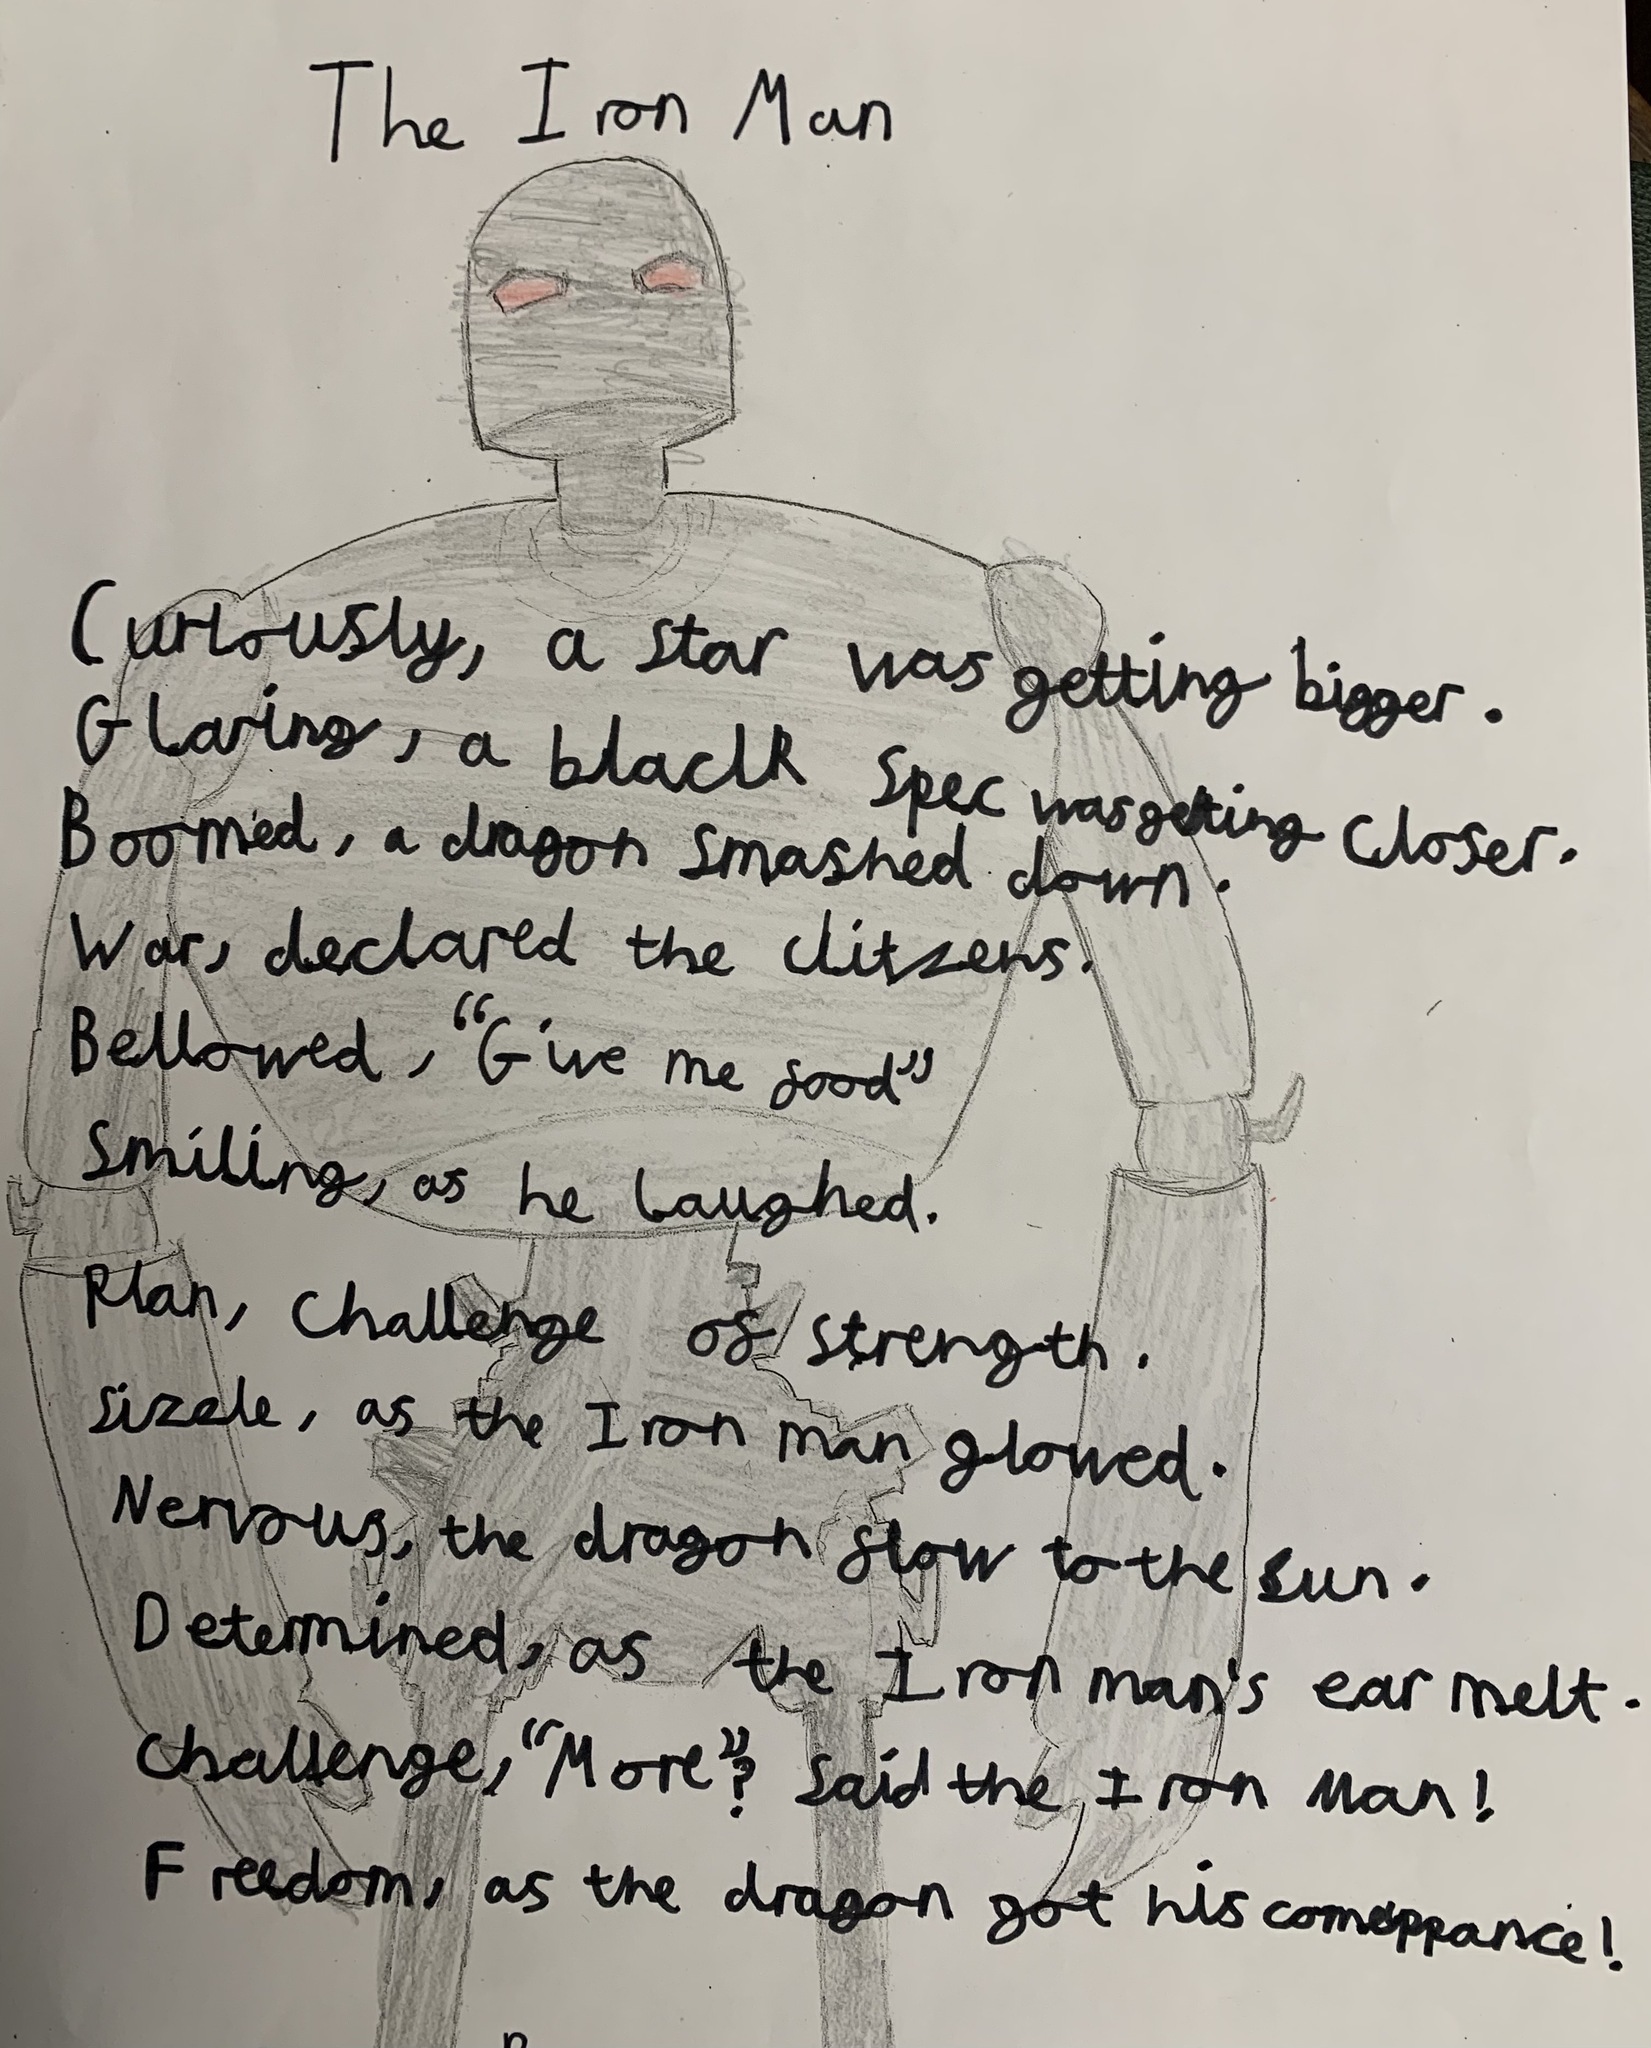 The Iron Man
Curiously, a star was getting bigger.
Glaring, a black spec was getting closer.
Boomed, a dragon smashed down.
War, declared the citzens.
Bellowed, "Give me food"
Smiling, as he laughed.
Plan, challenge of strength.
Sizzle, as the Iron man glowed.
Nervous, the dragon flow to the sun.
Determined, as the Iron man's ear melt.
Challenge, "More"? said the Iron Man!
Freedom, as the dragon got his comeppance!